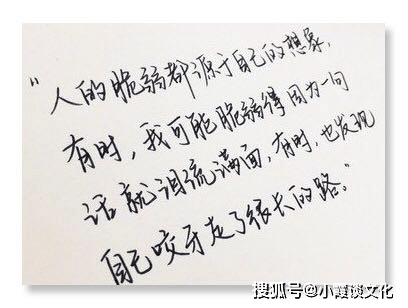 “人的脆弱都源于自己的想象，
有时，我可能脆弱得因为一句
话就泪流满面，有时，也发现
自己咬牙走了很长的路。”
搜狐号@小霞谈文化